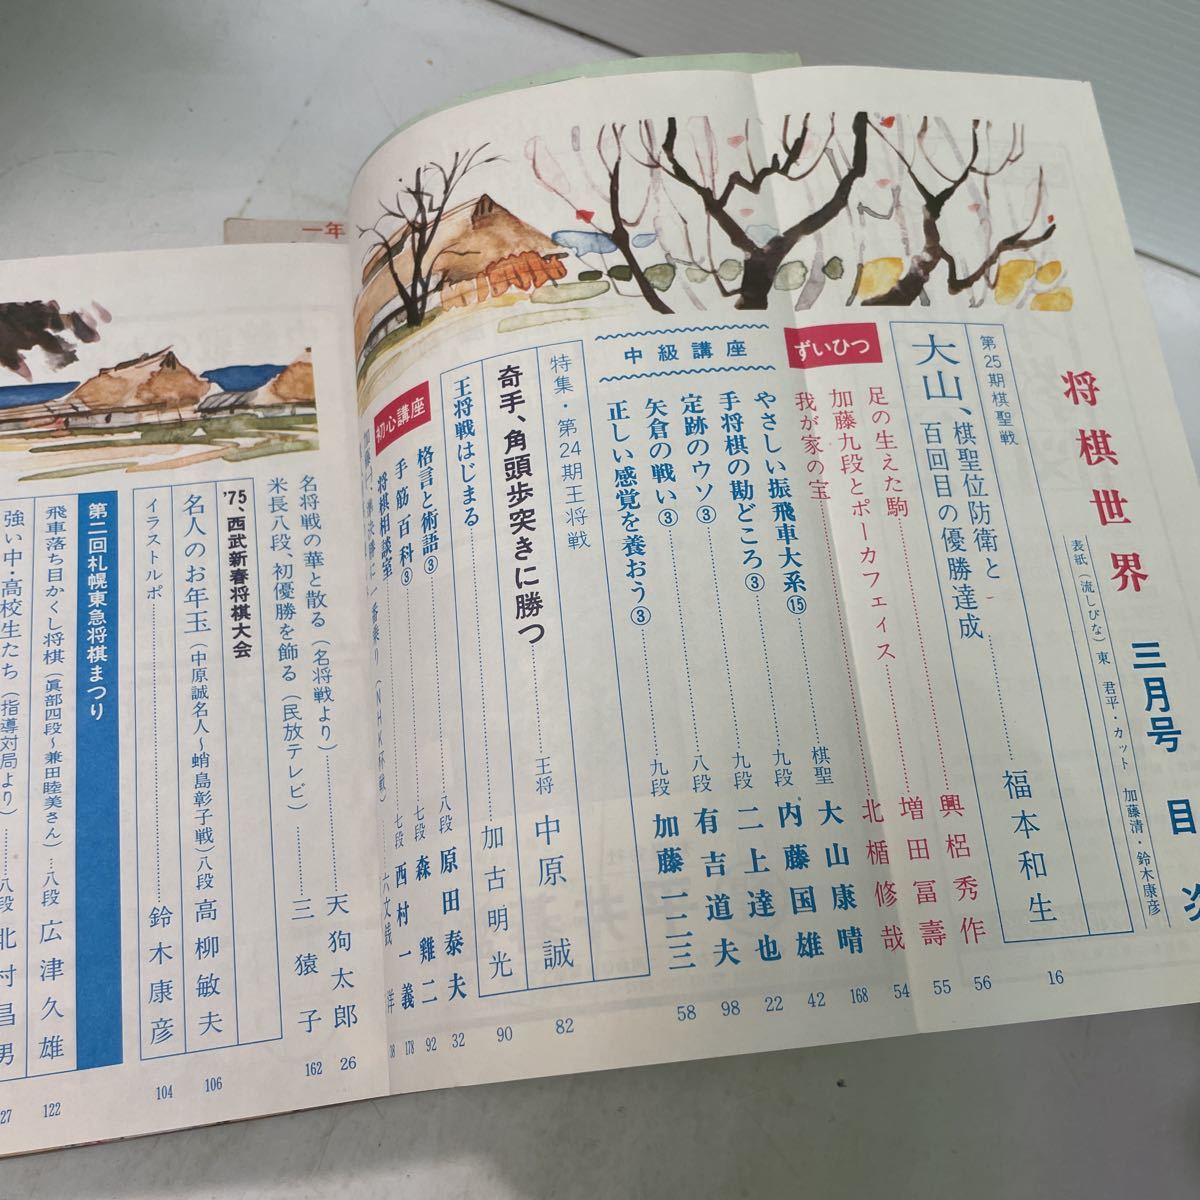 将棋世界 三月号 目次
表紙(流しびな)東 君平・カット 加藤清・鈴木康彦
第25期棋聖戦
大山、棋聖位防衛と
百回目の優勝達成
福本和生 16
ずいひつ
足の生えた駒 興梠秀作 56
加藤九段とポーカフェイス 増田冨壽 55
我が家の宝 北楯修哉 54
中級講座
やさしい振飛車大系⑮ 棋聖 大山康晴 168
手将棋の勘どころ③ 九段 内藤国雄 42
定跡のウソ③ 九段 二上達也 22
矢倉の戦い③ 八段 有吉道夫 98
正しい感覚を養おう③ 九段 加藤一二三 58
特集・第24期王将戦
奇手、角頭歩突きに勝つ 王将 中原 誠 82
王将戦はじまる 加古明光 90
初心講座
格言と術語③ 八段 原田泰夫 32
手筋百科③ 七段 森 雞二 92
将棋相談室 七段 西村一義 178
名将戦の華と散る(名将戦より) 天狗太郎 26
米長八段、初優勝を飾る(民放テレビ) 三猿子 162
'75、西武新春将棋大会
名人のお年玉(中原誠名人〜蛸島彰子戦)八段 高柳敏夫 106
イラストルポ 鈴木康彦 104
第二回札幌東急将棋まつり
飛車落ち目かくし将棋(眞部四段〜兼田睦美さん)八段 広津久雄 122
強い中・高校生たち(指導対局より)八段 北村昌男 27
一年